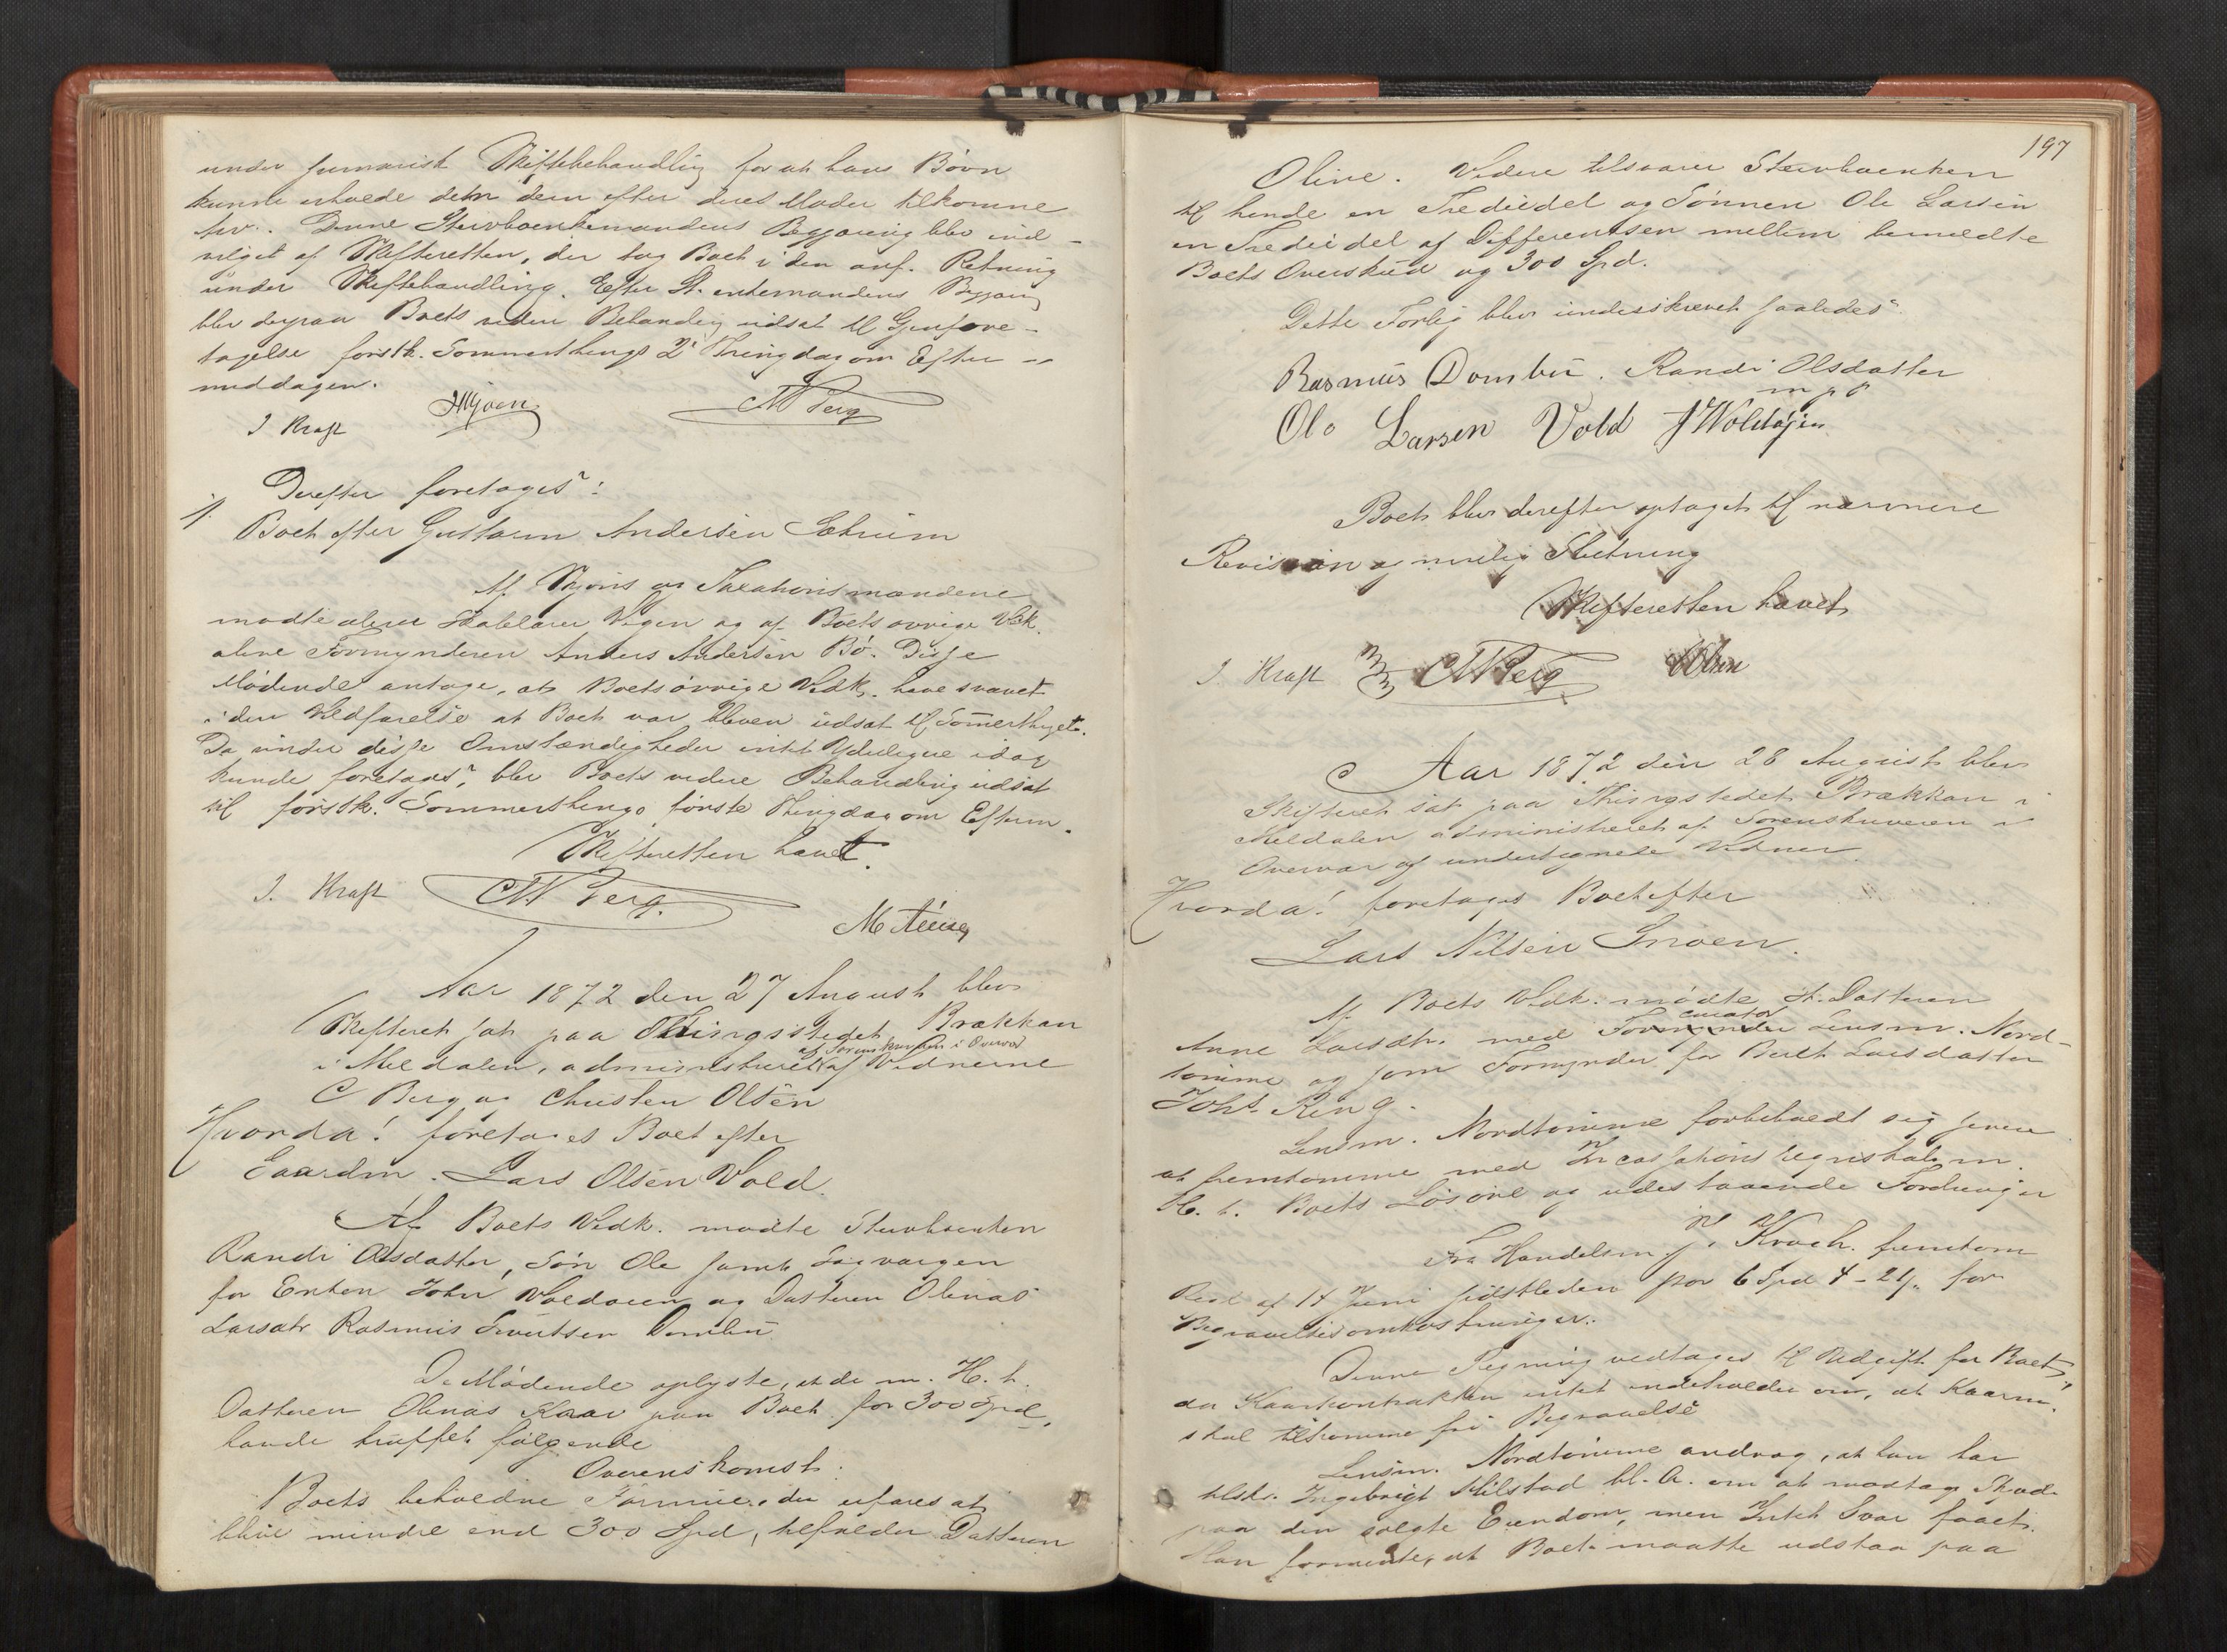 under summarisk Skiftebehandling for at hans Børn
kunde erholde den dem efter deres Moder tilkomne
Arv. Denne Stervboenkemandens Begjæring blev ind-
vilget af Skifteretten, der tog Boet i den anf. Retning
under Skiftebehandling. Efter St. enkemandens Begjæring
blev derpaa Boets videre Behandling udsat til Gjenfore-
tagelse førstk. Sommerthings 2den Thingdag om Efter-
middagen.
J Kraft CN Berg
Derefter foretoges:
Boet efter Gustav Andersen
Af Skjøns og Taxationsmændene
mødte alene og af Boets øvrige Vedk.
alene Formynderen Anders Andersen Bø. Disse
Mødende antage, at Boets øvrige Vedk. have svævet
i den Vildfarelse at Boet var bleven udsat til Sommerthinget.
Da under disse Omstændigheder intet Yderligere idag
kunde foretages, blev Boets videre Behandling udsat
til førstk. Sommerthings første Thingdag om Efterm.
Skifteretten hævet.
J. Kraft CN Berg.
Aar 1872 den 27 August blev
Skifteret sat paa Thingstedet Brækkan
i Meldalen, administreret af Sorenskriveren i Overvær af Vidnerne
C Berg og Christen Olsen
Hvorda! foretoges Boet efter
Gaardm. Lars Olsen Vold.
Af Boets Vedk. mødte Stervboenken
Randi Olsdatter, Søn Ole samt Lagværgen
for Enken John Woldøien og Datteren Olinas
Larsdtr Rasmus Sivertsen Dombu
De Mødende oplyste, at de m. H. t.
Datteren Olinas Krav paa Boet for 300 Spd.
havde truffet følgende
Overenskomst:
Boets beholdne Formue, der erfares at
blive mindre end 300 Spd, tilfalder Datteren
197
Oline. Videre tilsvarer Stervboenken
til hende en Trediedel og Sønnen Ole Larsen
en Trediedel af Differentsen mellem bemeldte
Boets Overskud og 300 Spd.
Dette Forlig blev underskrevet saaledes:
Rasmus Dombu. Randi Olsdatter
m p P
Ole Larsen Vold J Woldøjen
Boet blev derefter optaget til nærmere
Revision og mulig Slutning
Skifteretten hævet
J Kraft CN Berg COlsen
Aar 1872 den 28 August blev
Skifteret sat paa Thingstedet Brækkan i
Meldalen administreret af Sorenskriveren i
Overvær af undertegnede Vidner.
Hvorda! foretoges Boet efter
Lars Nilsen Snoen.
Af Boets Vedk. mødte St. Datteren
Anne Larsdtr. med curator Lensm. Nord-
tømme og som Formynder for Berit Larsdatter
Johs. Ring.
Lensm. Nordtømme forbeholdt sig senere
at fremkomme med Incassationsregnskab m.
H. t. Boets Løsøre og udestaaende Fordringer
Fra Handelsm J. Kroch. fremkom
Regl af 14 Juni sidstleden stor 6 Spd 4-21 for
Begravelsesomkostninger.
Denne Regning vedtages til Udgift for Boet,
da Kaarkontrakten intet indeholder om, at Kaarm.
skal tilkomme fri Begravelse
Lensm. Nordtømme androg, at han har
tilskr. Ingebrigt Milstad bl. A. om at modtage Skjøde
paa den solgte Eiendom, men Intet Svar faaet.
Han formente, at Boet maatte udstaa paa